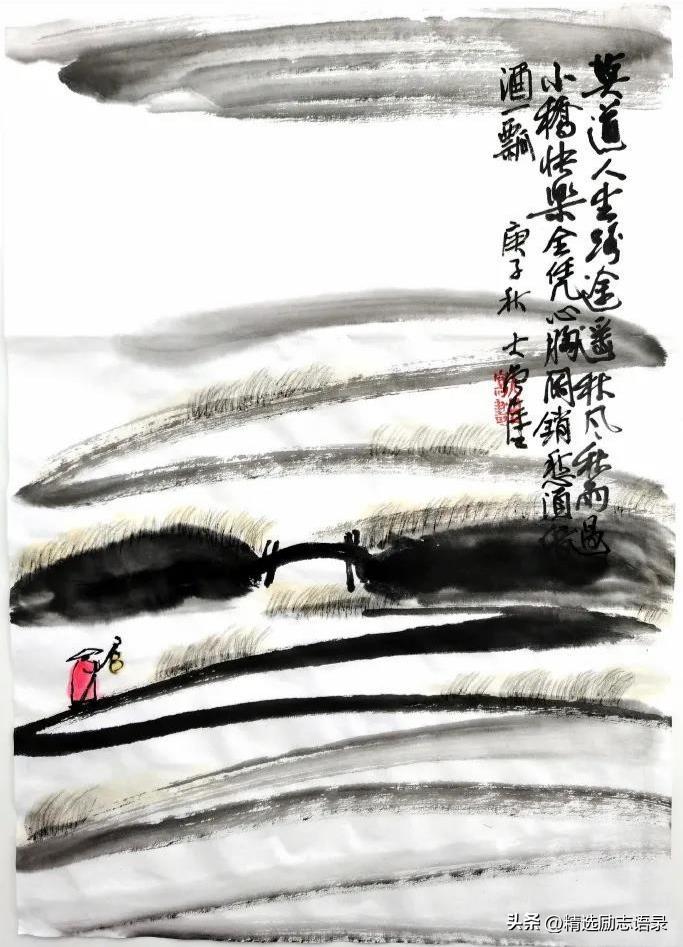 莫道人生路途遥秋风秋雨過
小橋快樂全凭心胸闊銷愁
酒一瓢
庚子秋
头条 @精选励志语录